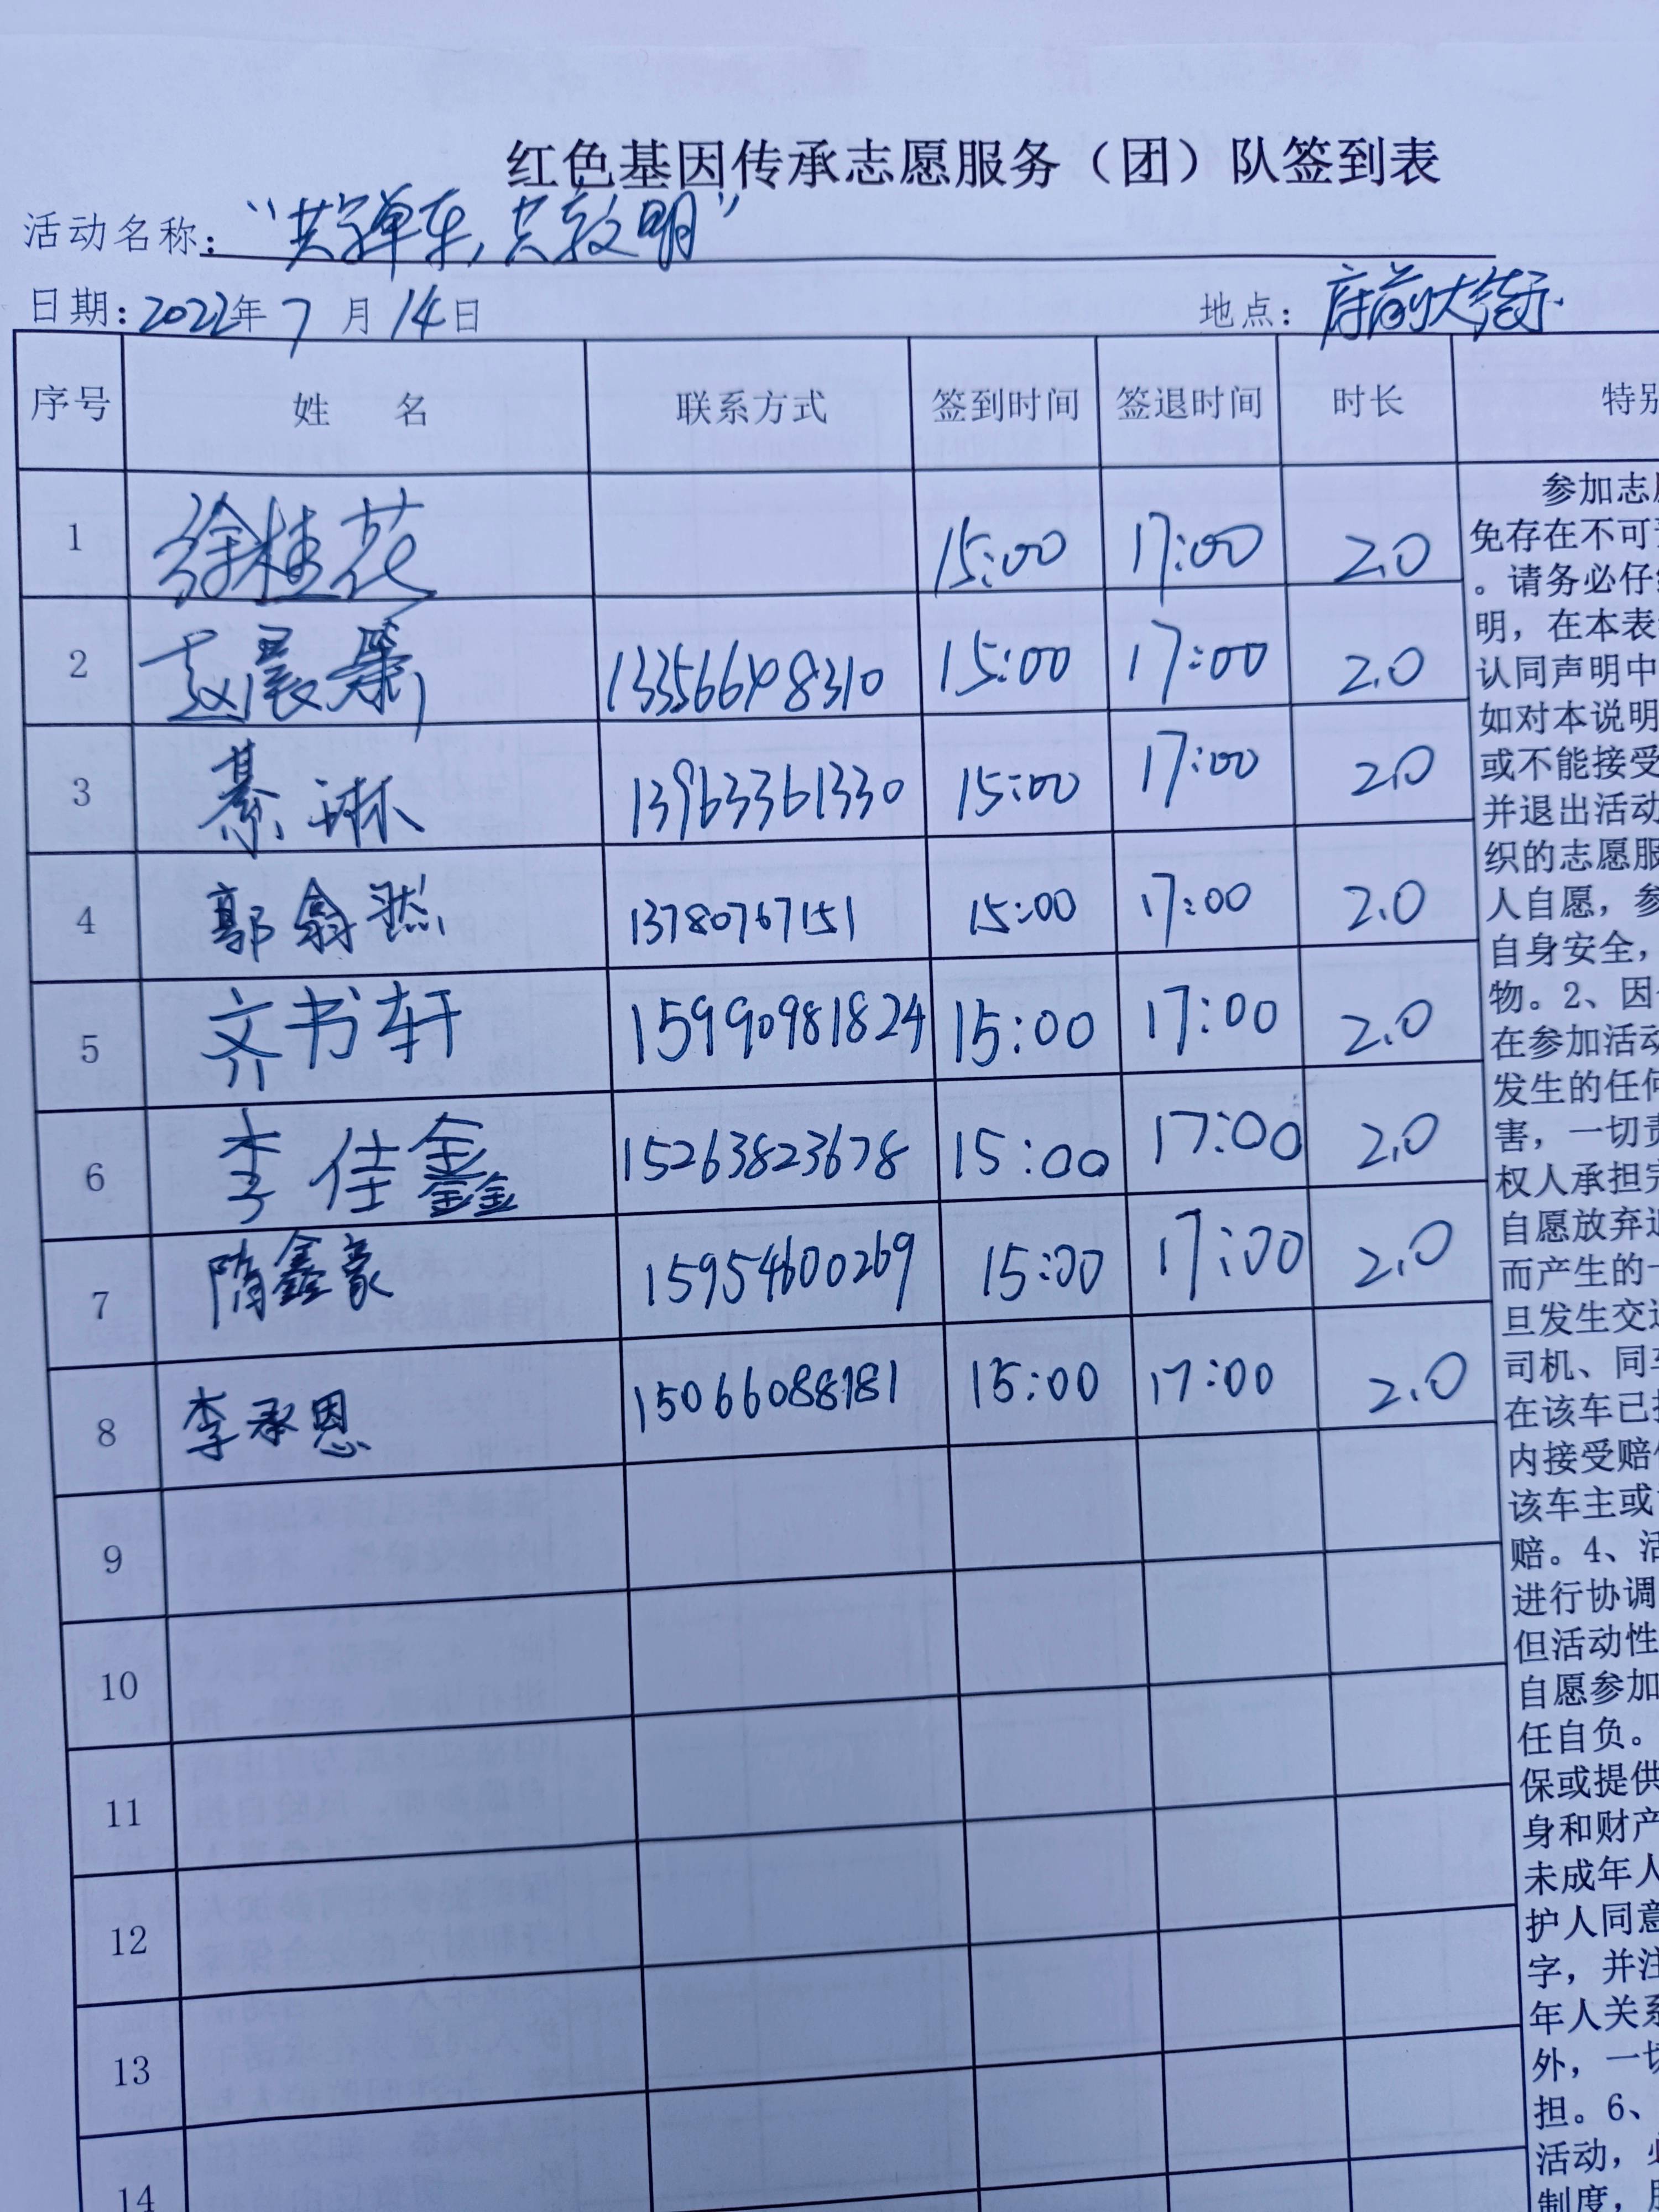 红色基因传承志愿服务（团）队签到表
活动名称：“共享单车，共享文明”
日期：2022年7月14日 地点：府前大街
序号 姓 名 联系方式 签到时间 签退时间 时长 特别
1 徐桂花 15:00 17:00 2.0
2 赵晨 13356648310 15:00 17:00 2.0
3 綦琳 13963361330 15:00 17:00 2.0
4 郭翕然 13780767151 15:00 17:00 2.0
5 齐书轩 15990981824 15:00 17:00 2.0
6 李佳鑫 15263823678 15:00 17:00 2.0
7 隋鑫豪 15954600269 15:00 17:00 2.0
8 李承恩 15066088181 15:00 17:00 2.0
9
10
11
12
13
14
参加志
免存在不可
。请务必仔
明，在本表
认同声明中
如对本说明
或不能接受
并退出活动
织的志愿服
人自愿，参
自身安全，
物。2、因
在参加活动
发生的任何
害，一切责
权人承担完
自愿放弃追
而产生的一
旦发生交通
司机、同车
在该车已投
内接受赔
该车主或
赔。4、活
进行协调
但活动性
自愿参加
任自负。
保或提供
身和财产
未成年人
护人同意
字，并注
年人关系
外，一切
担。6、
活动，必
制度，服